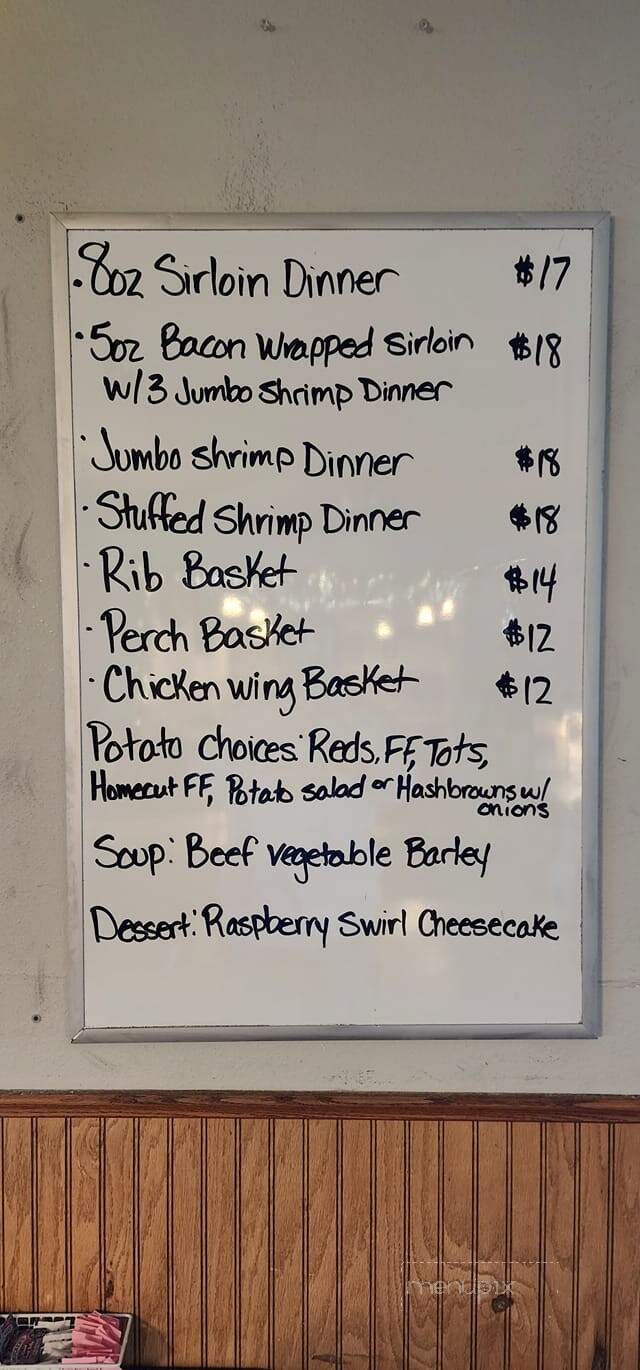 · 8oz Sirloin Dinner $17
· 5oz Bacon Wrapped Sirloin $18
w/3 Jumbo Shrimp Dinner
· Jumbo Shrimp Dinner $18
· Stuffed Shrimp Dinner $18
· Rib Basket $14
· Perch Basket $12
· Chicken wing Basket $12
Potato Choices: Reds, FF, Tots,
Homecut FF, Potato salad or Hashbrowns w/
onions
Soup: Beef vegetable Barley
Dessert: Raspberry Swirl Cheesecake
menupix